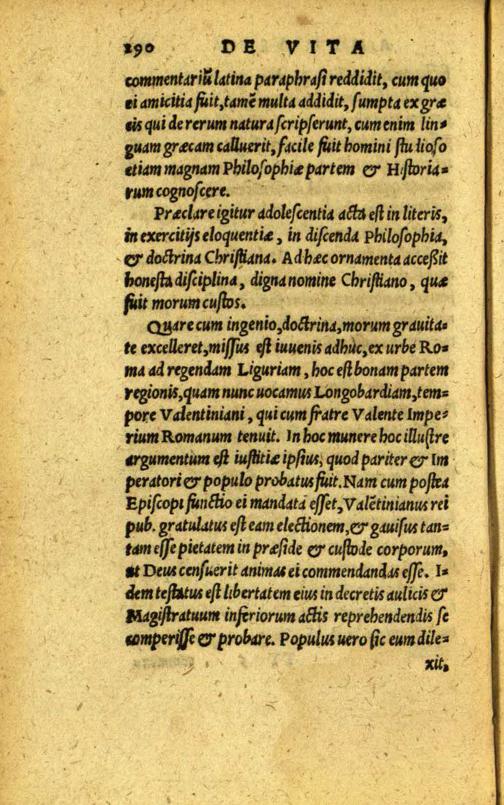 290 DE VITA
commentariũ latina paraphrasi reddidit, cum quo
ei amicitia fuit, tamẽ multa addidit, sumpta ex græ
cis qui de rerum natura scripserunt, cum enim lin=
guam græcam calluerit, facile fuit homini studioso
etiam magnam Philosophiæ partem & Historia=
rum cognoscere.
Præclare igitur adolescentia acta est in literis,
in exercitijs eloquentiæ, in discenda Philosophia,
& doctrina Christiana. Ad hæc ornamenta accessit
honesta disciplina, digna nomine Christiano, quæ
fuit morum custos.
Quare cum ingenio, doctrina, morum grauita=
te excelleret, missus est iuuenis adhuc, ex urbe Ro=
ma ad regendam Liguriam, hoc est bonam partem
regionis, quam nunc uocamus Longobardiam, tem=
pore Valentiniani, qui cum fratre Valente Impe=
rium Romanum tenuit. In hoc munere hoc illustre
argumentum est iustitiæ ipsius, quod pariter & Im
peratori & populo probatus fuit. Nam cum postea
Episcopi functio ei mandata esset, Valẽtinianus rei
pub. gratulatus est eam electionem, & gauisus tan=
tam esse pietatem in præside & custode corporum,
ut Deus censuerit animas ei commendandas esse. I=
dem testatus est libertatem eius in decretis aulicis &
Magistratuum inferiorum actis reprehendendis se
comperisse & probare. Populus uero sic eum dile=
xit,